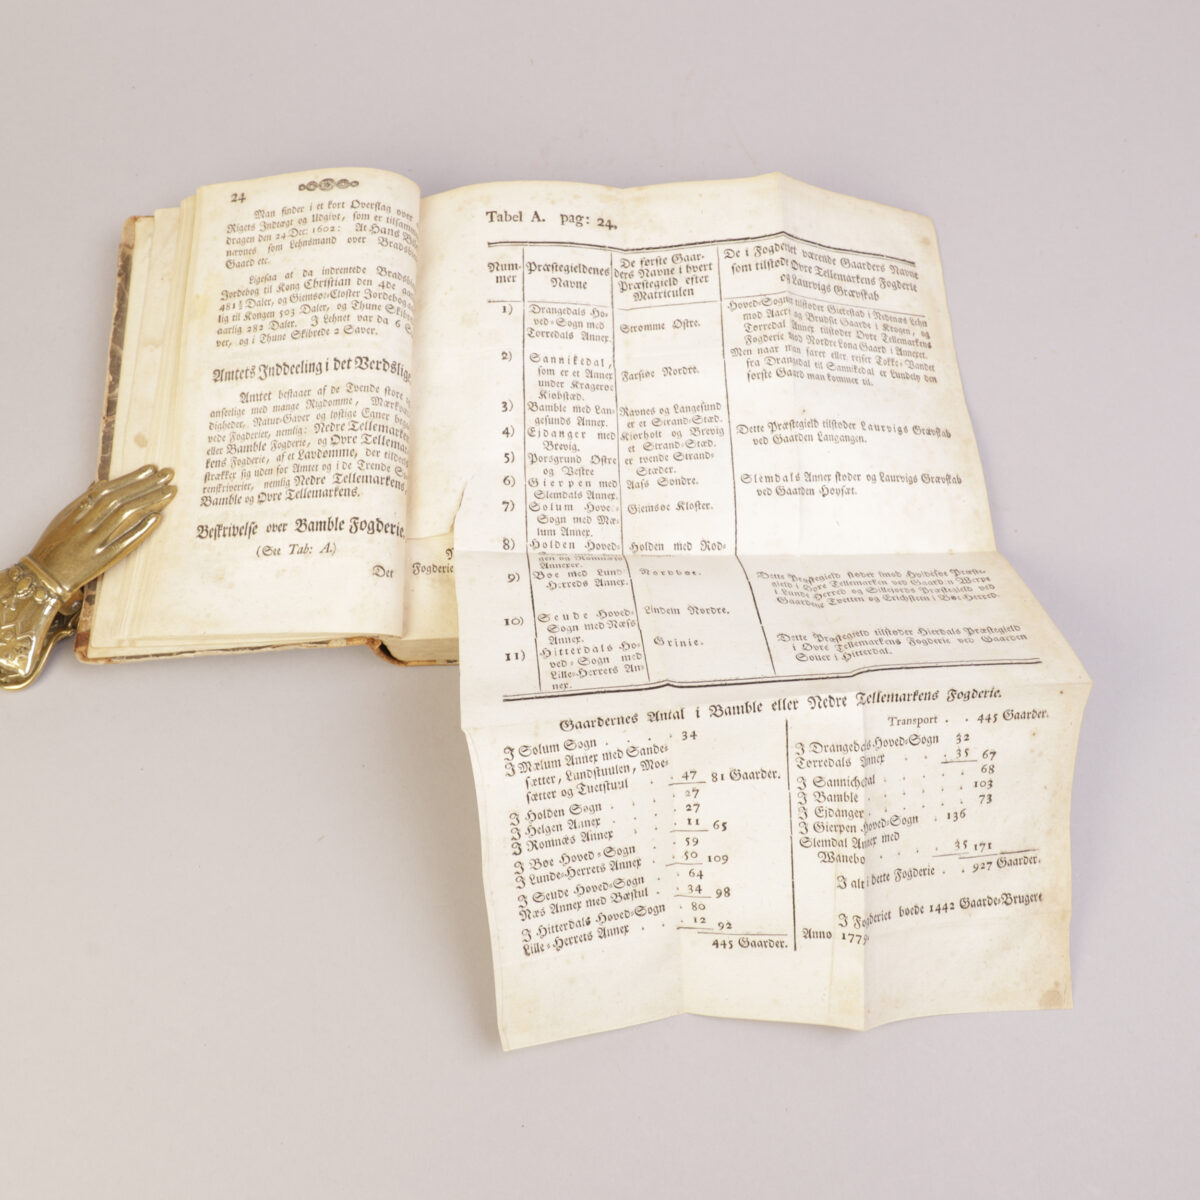 24
Man finder i et kort Overslag over
Rigets Indtægt og Udgivt, som er tilsammen
dragen den 24 Dec: 1602: At Hans
nævnes som Lehnsmand over
Gaard etc.
Ligesaa at da indrentede
Jordebog til Kong Christian den 4de
481½ Daler, og Giemsøe-Closter Jordebog
lig til Kongen 503 Daler, og Thune
aarlig 282 Daler. I Lehnet var da 6
ver, og i Thune Skibrede 2 Saver.
Amtets Inddeeling i det Verdslige
Amtet bestaaer af de Tvende store
anselige med mange Rigdomme,
digheder, Natur-Gaver og lystige Egner
vede Fogderier, nemlig: Nedre Tellemarkens
eller Bamble Fogderie, og Øvre Tellemar-
kens Fogderie, af et Lavdomme, der
strækker sig uden for Amtet og i de Trende
renskriverier, nemlig Nedre Tellemarkens,
Bamble og Øvre Tellemarkens.
Beskrivelse over Bamble Fogderie.
(See Tab: A.)
Det
Fogderie
Tabel A. pag: 24.
Num-
mer
Præstegieldenes
Navne
De første Gaar-
ders Navne i hvert
Præstegield efter
Matriculen
De i Fogderiet værende Gaarders Navne
som tilstøde Øvre Tellemarkens Fogderie
og Laurvigs Grævskab
1) Drangedals Ho-
ved-Sogn med
Torredals Annex.
Strømme Østre.
Hoved-Sognet tilstøder Gierestad i Nedenæs Lehn
mod Aart og Brudsit Gaarde i Krogen, og
Torredal Annex tilstøder Øvre Tellemarkens
Fogderie mod Nordre Lona Gaard i Annexet.
Men naar man farer eller rejser Tokke-Vandet
fra Drangedal til Sannikedal er Lundely den
første Gaard man kommer til.
2) Sannikedal,
som er et Annex
under Kragerøe
Kiøbstæd.
Farsiøe Nordre.
3) Bamble med Lan-
gesunds Annex.
Ravnes og Langesund
er et Strand-Stæd.
4) Ejdanger med
Brevig.
Kiørholt og Brevig
et Strand-Stæd.
Dette Præstegield tilstøder Laurvigs Grævskab
ved Gaarden Langangen.
5) Porsgrund Østre
og Vestre
er tvende Strand-
Stæder.
6) Gierpen med
Slemdals Annex.
Aafs Søndre.
Slemdals Annex støder og Laurvigs Grævskab
ved Gaarden Høysæt.
7) Solum Hove-
Sogn med Mæ-
lum Annex.
Giemsøe Kloster.
8) Holden Hoved-
gen og Romnæs
Annexer.
Holden med Rod-
9) Bøe med Lund-
Herreds Annex.
Nordbøe.
Dette Præstegield støder imod Hoidesøe Præste-
gield i Øvre Tellemarken ved Gaarden Werpe
i Lunde Herred og Sillejords Præstegield ved
Gaardene Tvetten og Erichstein i Bøe Herred.
10) Seude Hoved-
Sogn med Næss
Annex.
Lindem Nordre.
11) Hitterdals Ho-
ved-Sogn med
Lille-Herrets An-
nex.
Grinie.
Dette Præstegield tilstøder Hierdals Præstegield
i Øvre Tellemarkens Fogderie ved Gaarden
Souer i Hitterdal.
Gaardernes Antal i Bamble eller Nedre Tellemarkens Fogderie.
I Solum Sogn . . . . 34
I Mælum Annex med Sande-
sætter, Lundstuulen, Moe-
sætter og Tuetstuul . . 47 81 Gaarder.
I Holden Sogn . . . 27
I Helgen Annex . . . 27
I Romnæs Annex . . 11 65
I Bøe Hoved-Sogn . . 59
I Lunde-Herrets Annex . 50 109
I Seude Hoved-Sogn . . 64
Næs Annex med Bæstul . . 34 98
I Hitterdals Hoved-Sogn . 80
Lille-Herrets Annex . . 12 92
445 Gaarder.
Transport . . 445 Gaarder.
I Drangedals-Hoved-Sogn 32
Torredals Annex . . . 35 67
I Sannichedal . . . . 68
I Bamble . . . . . 103
I Ejdanger . . . . . 73
I Gierpen Hoved-Sogn . 136
Slemdal Annex med
Wanebo . . . . 35 171
I alt i dette Fogderie . . 927 Gaarder.
I Fogderiet boede 1442 Gaarde-Brugere
Anno 1779.